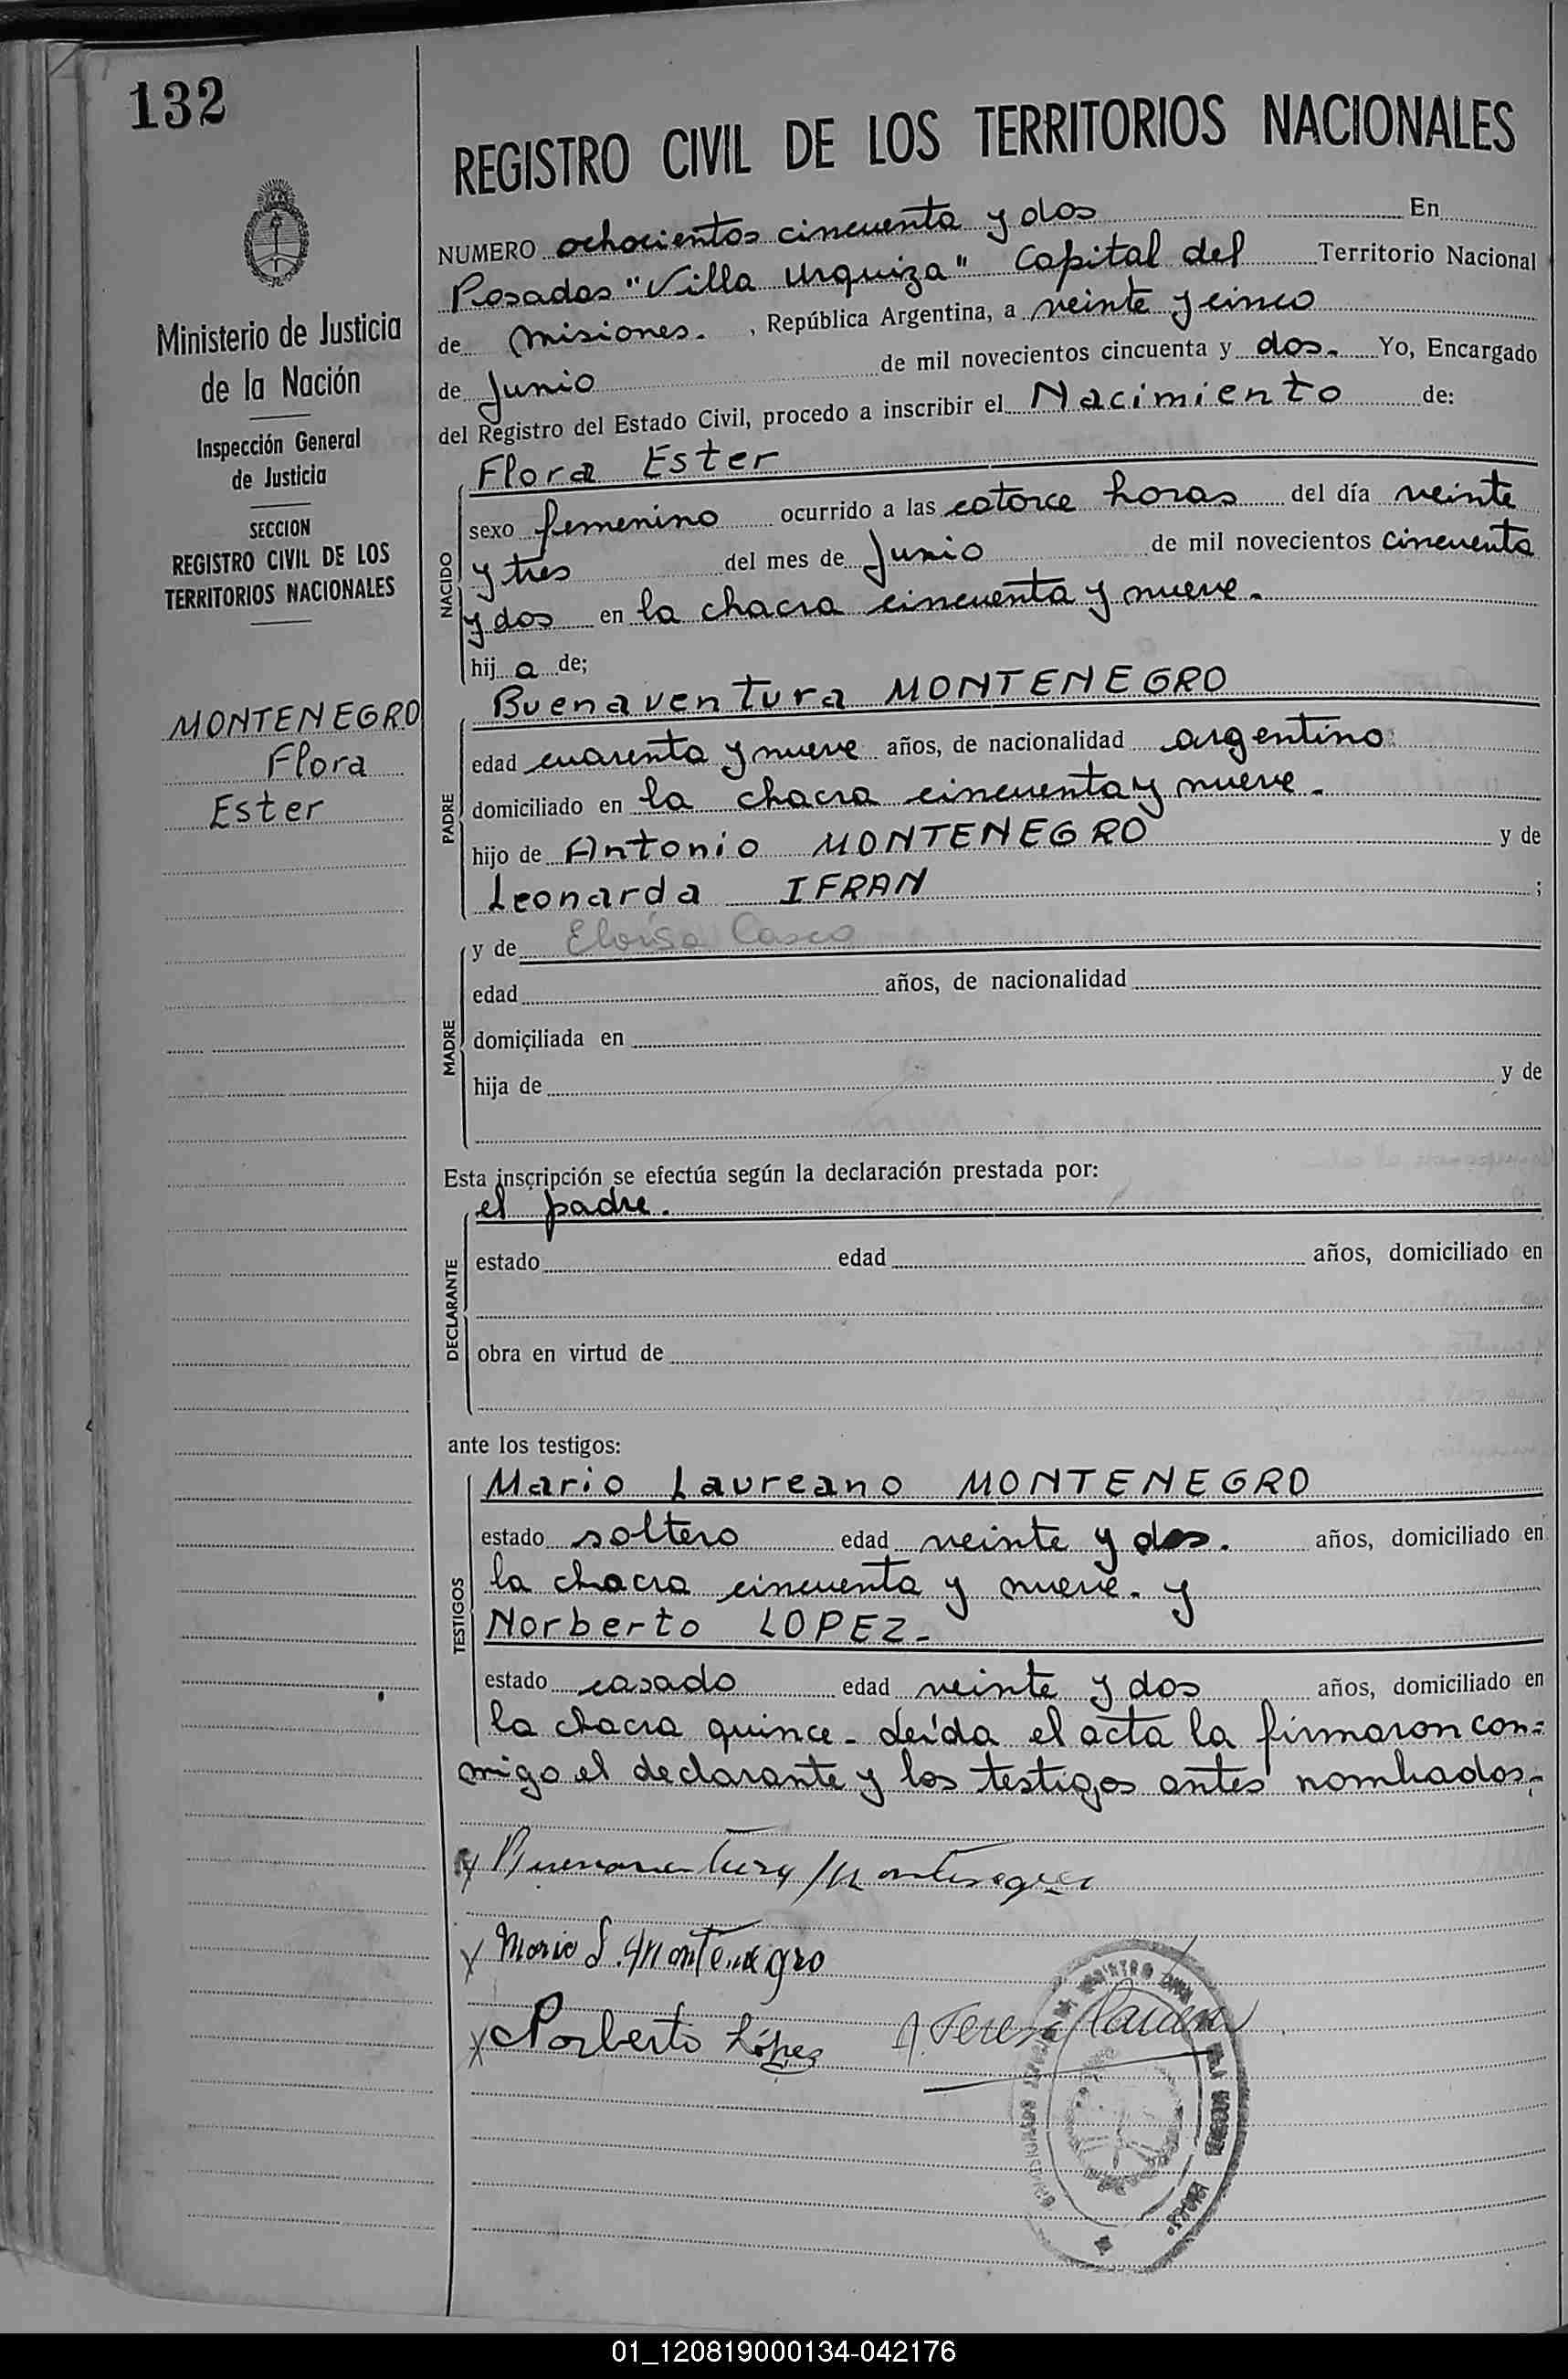 132
REGISTRO CIVIL DE LOS TERRITORIOS NACIONALES
Ministerio de Justicia
de la Nación
Inspección General
de Justicia
SECCION
REGISTRO CIVIL DE LOS
TERRITORIOS NACIONALES
MONTENEGRO
Flora
Ester
NUMERO ochocientos cincuenta y dos En
Posadas "Villa Urquiza" Capital del Territorio Nacional
de Misiones. , República Argentina, a veinte y cinco
de Junio de mil novecientos cincuenta y dos. Yo, Encargado
del Registro del Estado Civil, procedo a inscribir el Nacimiento de:
NACIDO
Flora Ester
sexo femenino ocurrido a las catorce horas del día veinte
y tres del mes de Junio de mil novecientos cincuenta
y dos en la chacra cincuenta y nueve.
hij a de;
PADRE
Buenaventura MONTENEGRO
edad cuarenta y nueve años, de nacionalidad argentino
domiciliado en la chacra cincuenta y nueve.
hijo de Antonio MONTENEGRO y de
Leonarda IFRAN ;
MADRE
y de Eloisa Casco
edad años, de nacionalidad
domiciliada en
hija de y de
Esta inscripción se efectúa según la declaración prestada por:
DECLARANTE
el padre.
estado edad años, domiciliado en
obra en virtud de
ante los testigos:
TESTIGOS
Mario Laureano MONTENEGRO
estado soltero edad veinte y dos. años, domiciliado en
la chacra cincuenta y nueve. y
Norberto LOPEZ-
estado casado edad veinte y dos años, domiciliado en
la chacra quince - Leída el acta la firmaron con=
migo el declarante y los testigos antes nombrados.-
Buenaventura Montenegro
Mario L. Montenegro
Norberto López
01_120819000134-042176